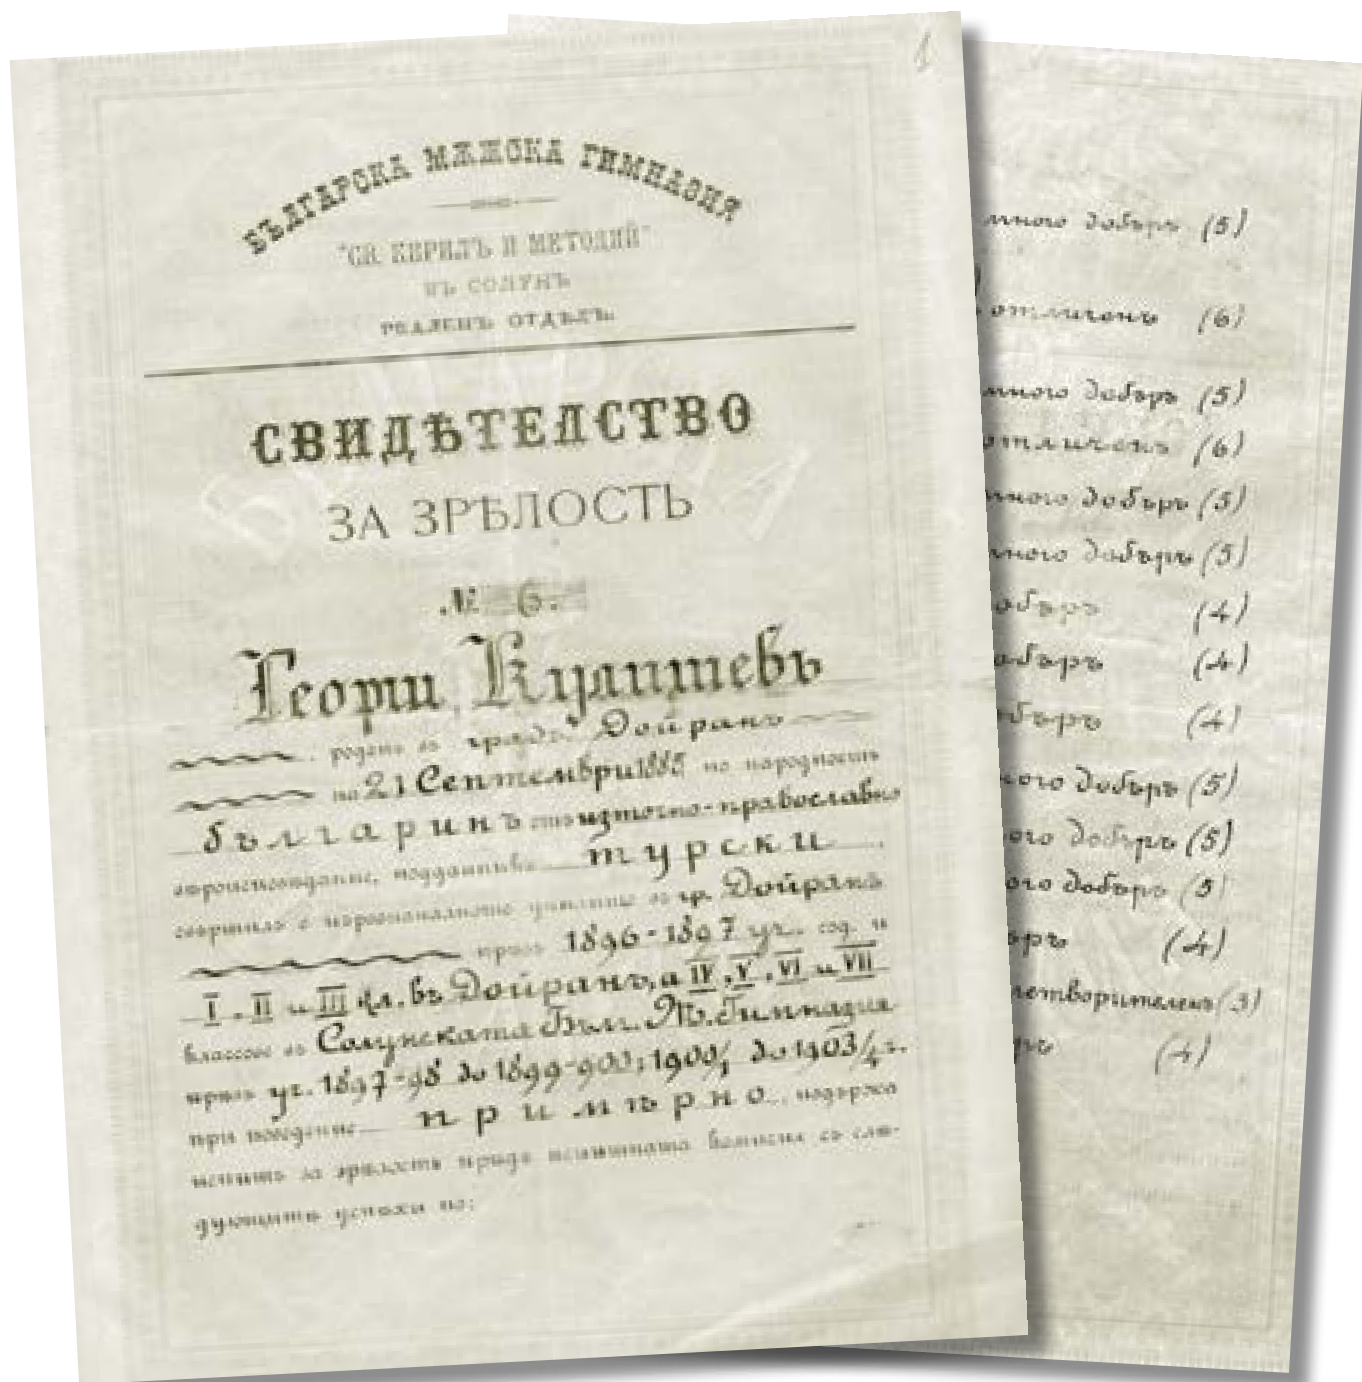 1
БЪЛГАРСКА МѪЖСКА ГИМНАЗИЯ
"СВ. КИРИЛЪ И МЕТОДИЙ"
ВЪ СОЛУНЪ
РЕАЛЕНЪ ОТДѢЛЪ.
СВИДѢТЕЛСТВО
ЗА ЗРѢЛОСТЬ
№ 6.
Георги Кулишевъ
роденъ въ градъ Дойранъ
на 21 Септемврий 1885 по народность
българинъ отъ източно-православно
вѣроисповѣдание, подданикъ турски,
свършилъ е първоначалното училище въ гр. Дойранъ
прѣзъ 1896-1897 уч. год. и
I, II и III кл. въ Дойранъ, а IV, V, VI и VII
классове въ Солунската Бълг. М. Гимназия
прѣзъ уч. 1897-98 до 1899-900; 1900/1 до 1903/4 г.
при поведение примѣрно, подържа
испитъ за зрѣлость прѣдъ испитната комисия съ слѣ-
дующитѣ успѣхи по:
много добъръ (5)
отличенъ (6)
много добъръ (5)
отличенъ (6)
много добъръ (5)
много добъръ (5)
объръ (4)
объръ (4)
объръ (4)
ного добъръ (5)
ого добъръ (5)
ого добъръ (5)
ъръ (4)
летворителенъ (3)
ръ (4)